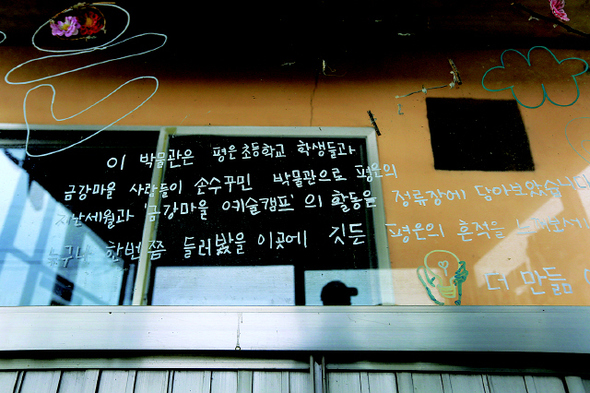 이 박물관은 평은초등학교 학생들과
금강마을 사람들이 손수꾸민 박물관으로 평은의
지난세월과 '금강마을 예술캠프'의 활동을 정류장에 담아보았습니다
누구나 한번쯤 들러봤을 이곳에 깃든 평은의 흔적을 느껴보세
더 만듦